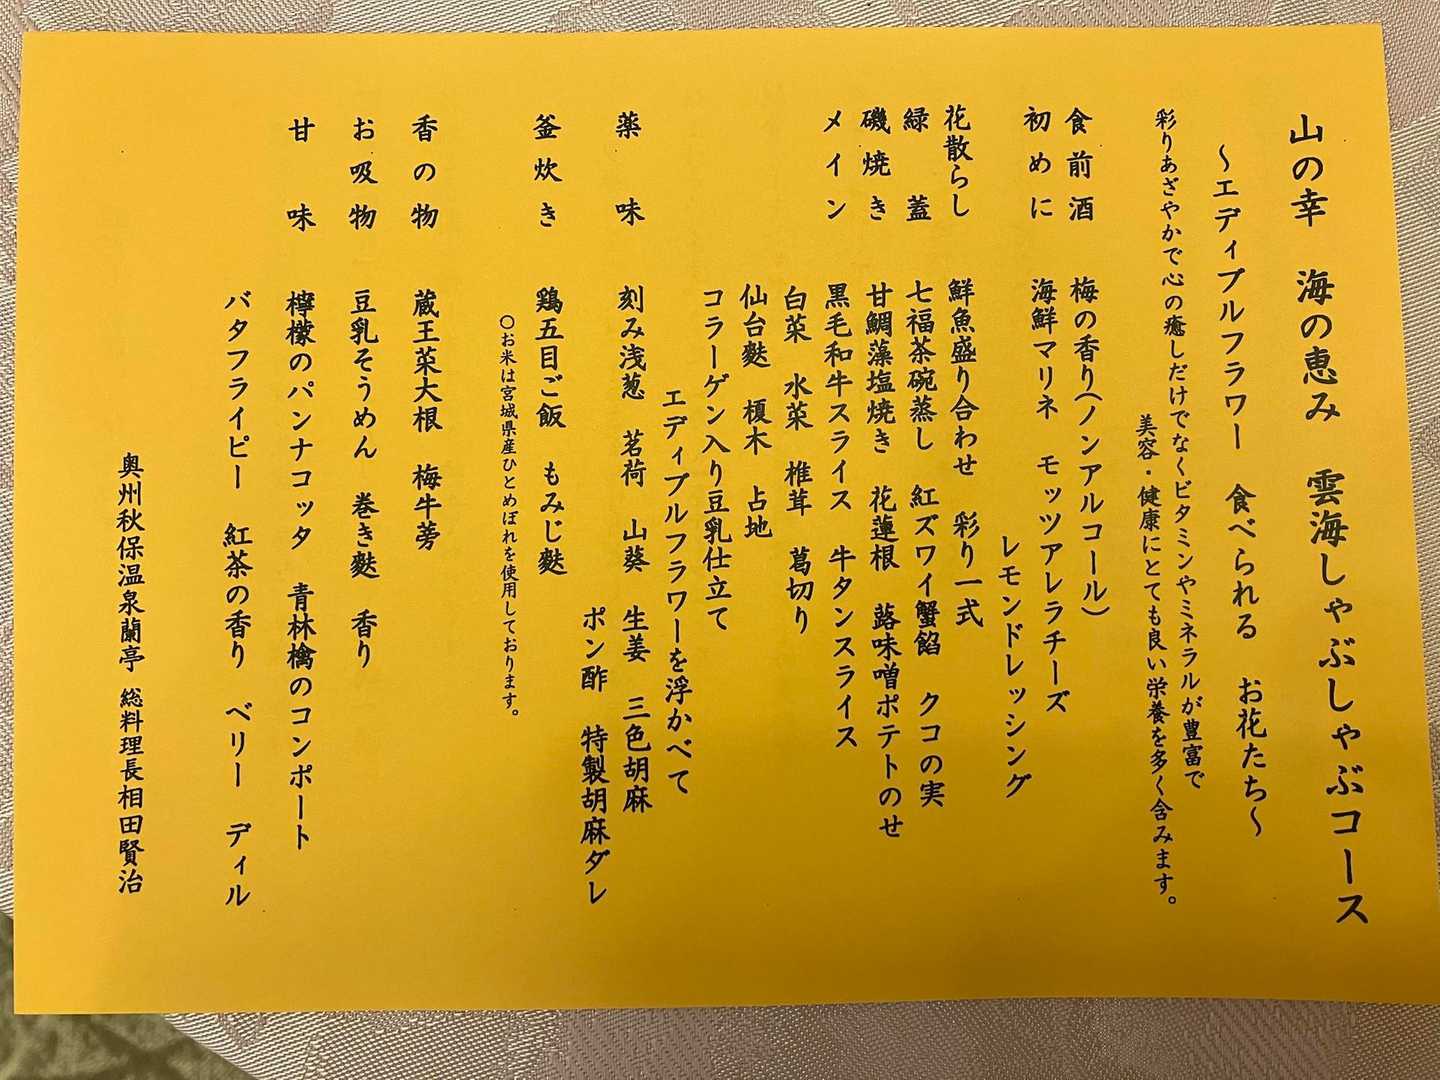 山の幸　海の恵み　雲海しゃぶしゃぶコース
～エディブルフラワー　食べられる　お花たち～
彩りあざやかで心の癒しだけでなくビタミンやミネラルが豊富で
美容・健康にとても良い栄養を多く含みます。
食前酒　梅の香り（ノンアルコール）
初めに　海鮮マリネ　モッツアレラチーズ
レモンドレッシング
花散らし　鮮魚盛り合わせ　彩り一式
緑蓋　七福茶碗蒸し　紅ズワイ蟹餡　クコの実
磯焼き　甘鯛藻塩焼き　花蓮根　蕗味噌ポテトのせ
メイン　黒毛和牛スライス　牛タンスライス
白菜　水菜　椎茸　葛切り
仙台麩　榎木　占地
コラーゲン入り豆乳仕立て
エディブルフラワーを浮かべて
薬味　刻み浅葱　茗荷　山葵　生姜　三色胡麻
ポン酢　特製胡麻ダレ
釜炊き　鶏五目ご飯　もみじ麩
〇お米は宮城県産ひとめぼれを使用しております。
香の物　蔵王菜大根　梅牛蒡
お吸物　豆乳そうめん　巻き麩　香り
甘味　檸檬のパンナコッタ　青林檎のコンポート
バタフライピー　紅茶の香り　ベリー　ディル
奥州秋保温泉蘭亭　総料理長相田賢治